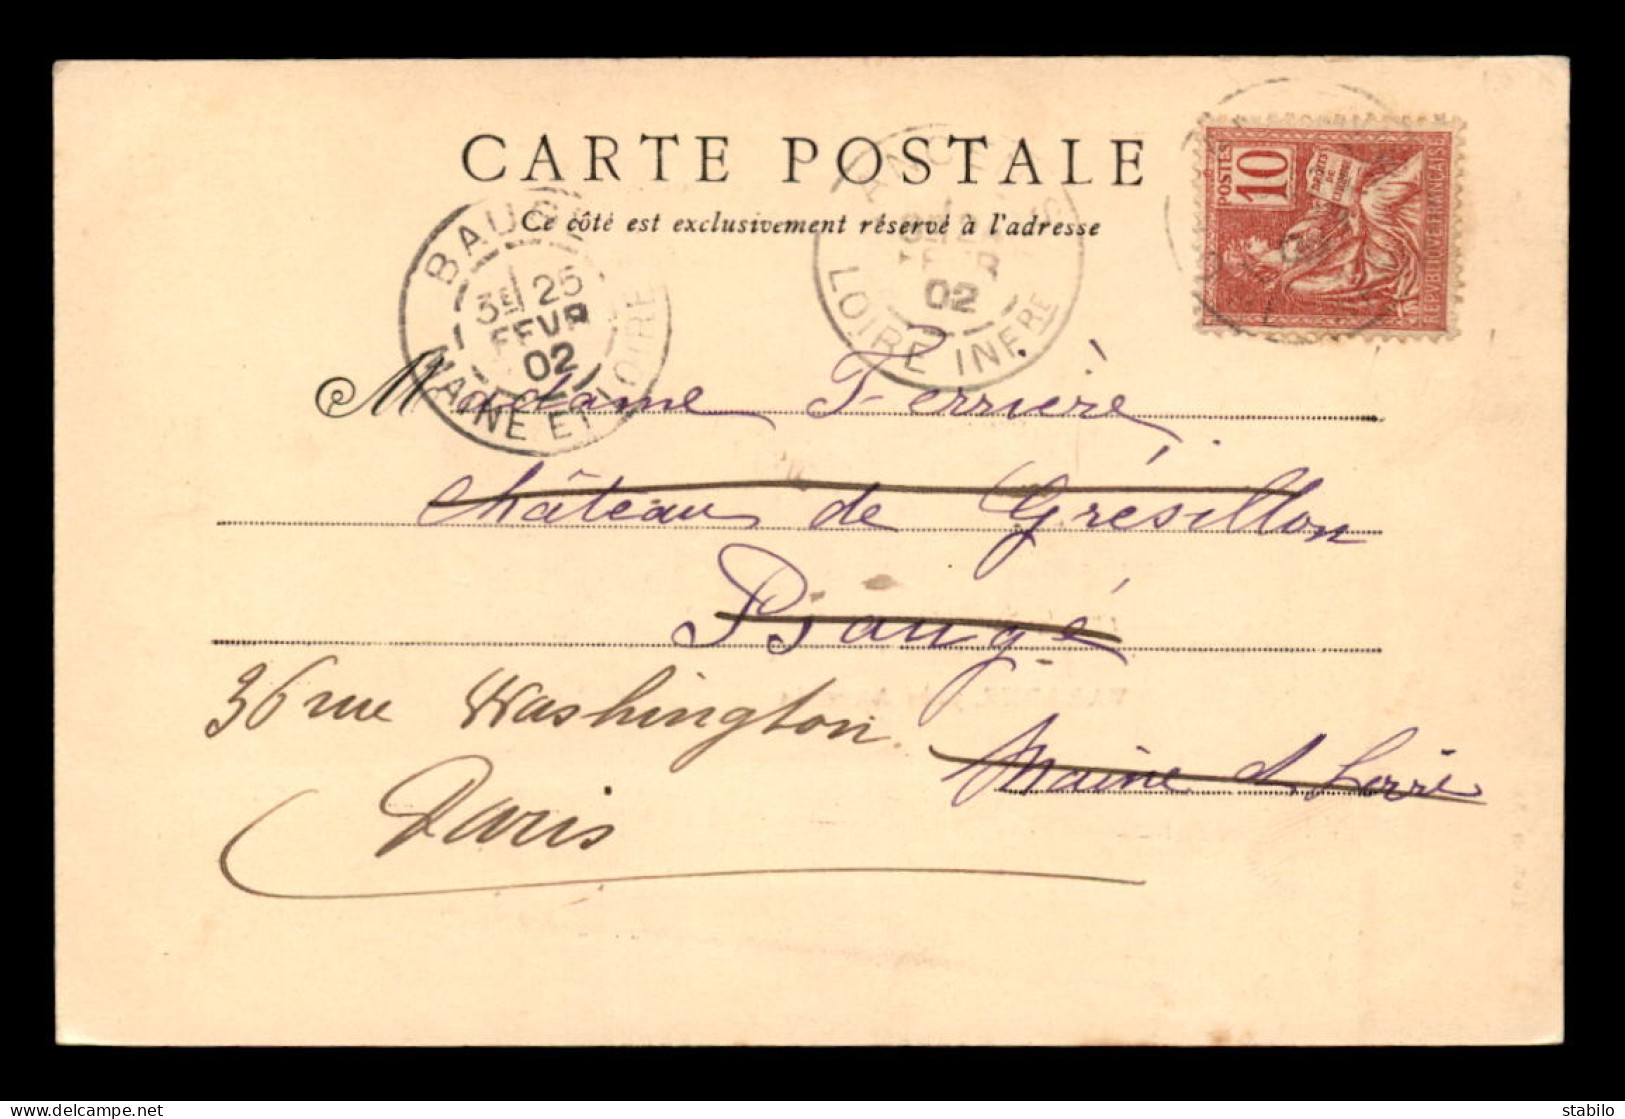 CARTE POSTALE
Ce côté est exclusivement réservé à l'adresse
BAUGÉ
3E 25
FEVR
02
MAINE ET LOIRE
02
LOIRE INFRE
POSTES
10
DROITS
DE
L'HOMME
REPVBLIQVE FRANCAISE
Madame Ferrière
château de Grésillon
Baugé
36 rue Washington
Maine et Loire
Paris
delcampe.net
stabilo